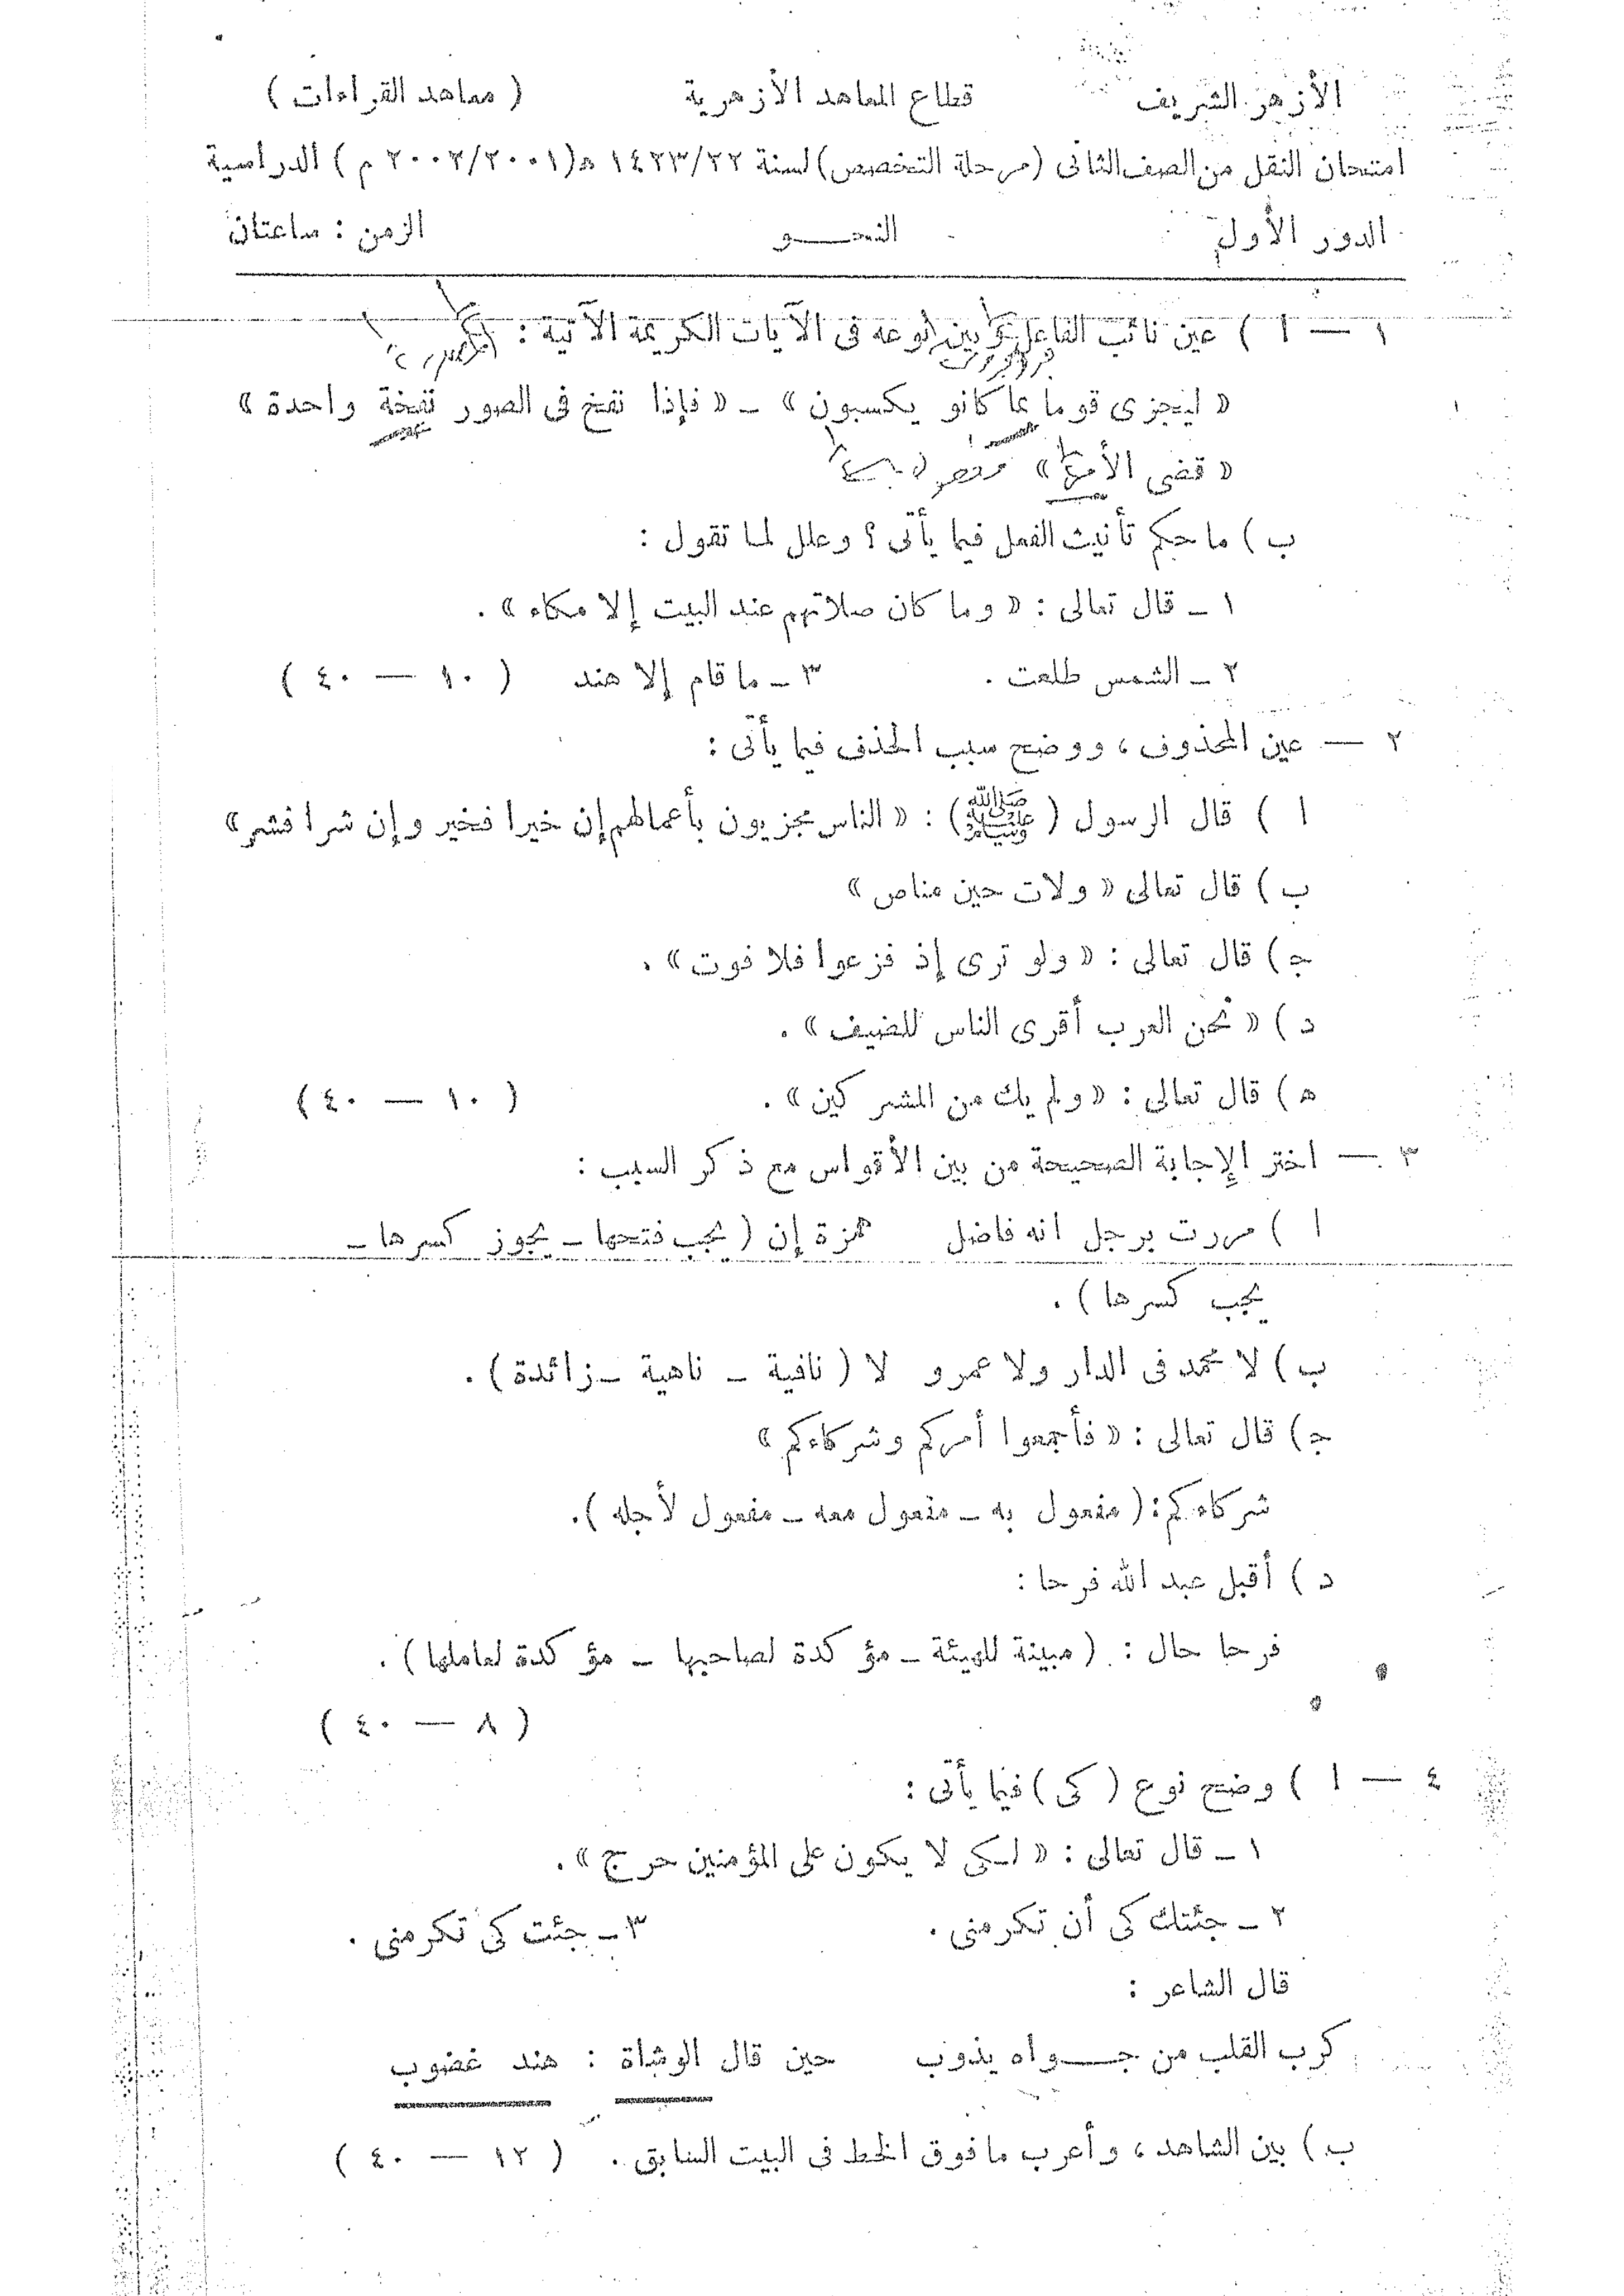 الأزهر الشريف قطاع المعاهد الأزهرية ( معاهد القراءات )
امتحان النقل من الصف الثانى ( مرحلة التخصص ) لسنة ١٤٢٣/٢٢ هـ ( ٢٠٠٢/٢٠٠١ م ) الدراسية
الدور الأول النحـــو الزمن : ساعتان
١ — ا ) عين نائب الفاعل وبين نوعه فى الآيات الكريمة الآتية :
« ليجزى قوما بما كانو يكسبون » ــ « فإذا نفخ فى الصور نفخة واحدة »
« قضى الأمر »
ب ) ما حكم تأنيث الفعل فيما يأتى ؟ وعلل لما تقول :
١ ــ قال تعالى : « وما كان صلاتهم عند البيت إلا مكاء » .
٢ ــ الشمس طلعت . ٣ ــ ما قام إلا هند ( ١٠ — ٤٠ )
٢ — عين المحذوف ، ووضح سبب الحذف فيما يأتى :
ا ) قال الرسول ( صلى الله عليه وسلم ) : « الناس مجزيون بأعمالهم إن خيرا فخير وإن شرا فشر »
ب ) قال تعالى « ولات حين مناص »
جـ ) قال تعالى : « ولو ترى إذ فزعوا فلا فوت » .
د ) « نحن العرب أقرى الناس للضيف » .
هـ ) قال تعالى : « ولم يك من المشركين » . ( ١٠ — ٤٠ )
٣ — اختر الإجابة الصحيحة من بين الأقواس مع ذكر السبب :
ا ) مررت برجل انه فاضل همزة إن ( يجب فتحها ــ يجوز كسرها ــ
يجب كسرها ) .
ب ) لا محمد فى الدار ولا عمرو لا ( نافية ــ ناهية ــ زائدة ) .
جـ ) قال تعالى : « فأجمعوا أمركم وشركاءكم »
شركاءكم : ( مفعول به ــ مفعول معه ــ مفعول لأجله ) .
د ) أقبل عبد الله فرحا :
فرحا حال : ( مبينة للهيئة ــ مؤكدة لصاحبها ــ مؤكدة لعاملها ) .
( ٨ — ٤٠ )
٤ — ا ) وضح نوع ( كى ) فيما يأتى :
١ ــ قال تعالى : « لكى لا يكون على المؤمنين حرج » .
٢ ــ جئتك كى أن تكرمنى . ٣ ــ جئت كى تكرمنى .
قال الشاعر :
كرب القلب من جـــواه يذوب حين قال الوشاة : هند غضوب
ب ) بين الشاهد ، وأعرب ما فوق الخط فى البيت السابق . ( ١٢ — ٤٠ )